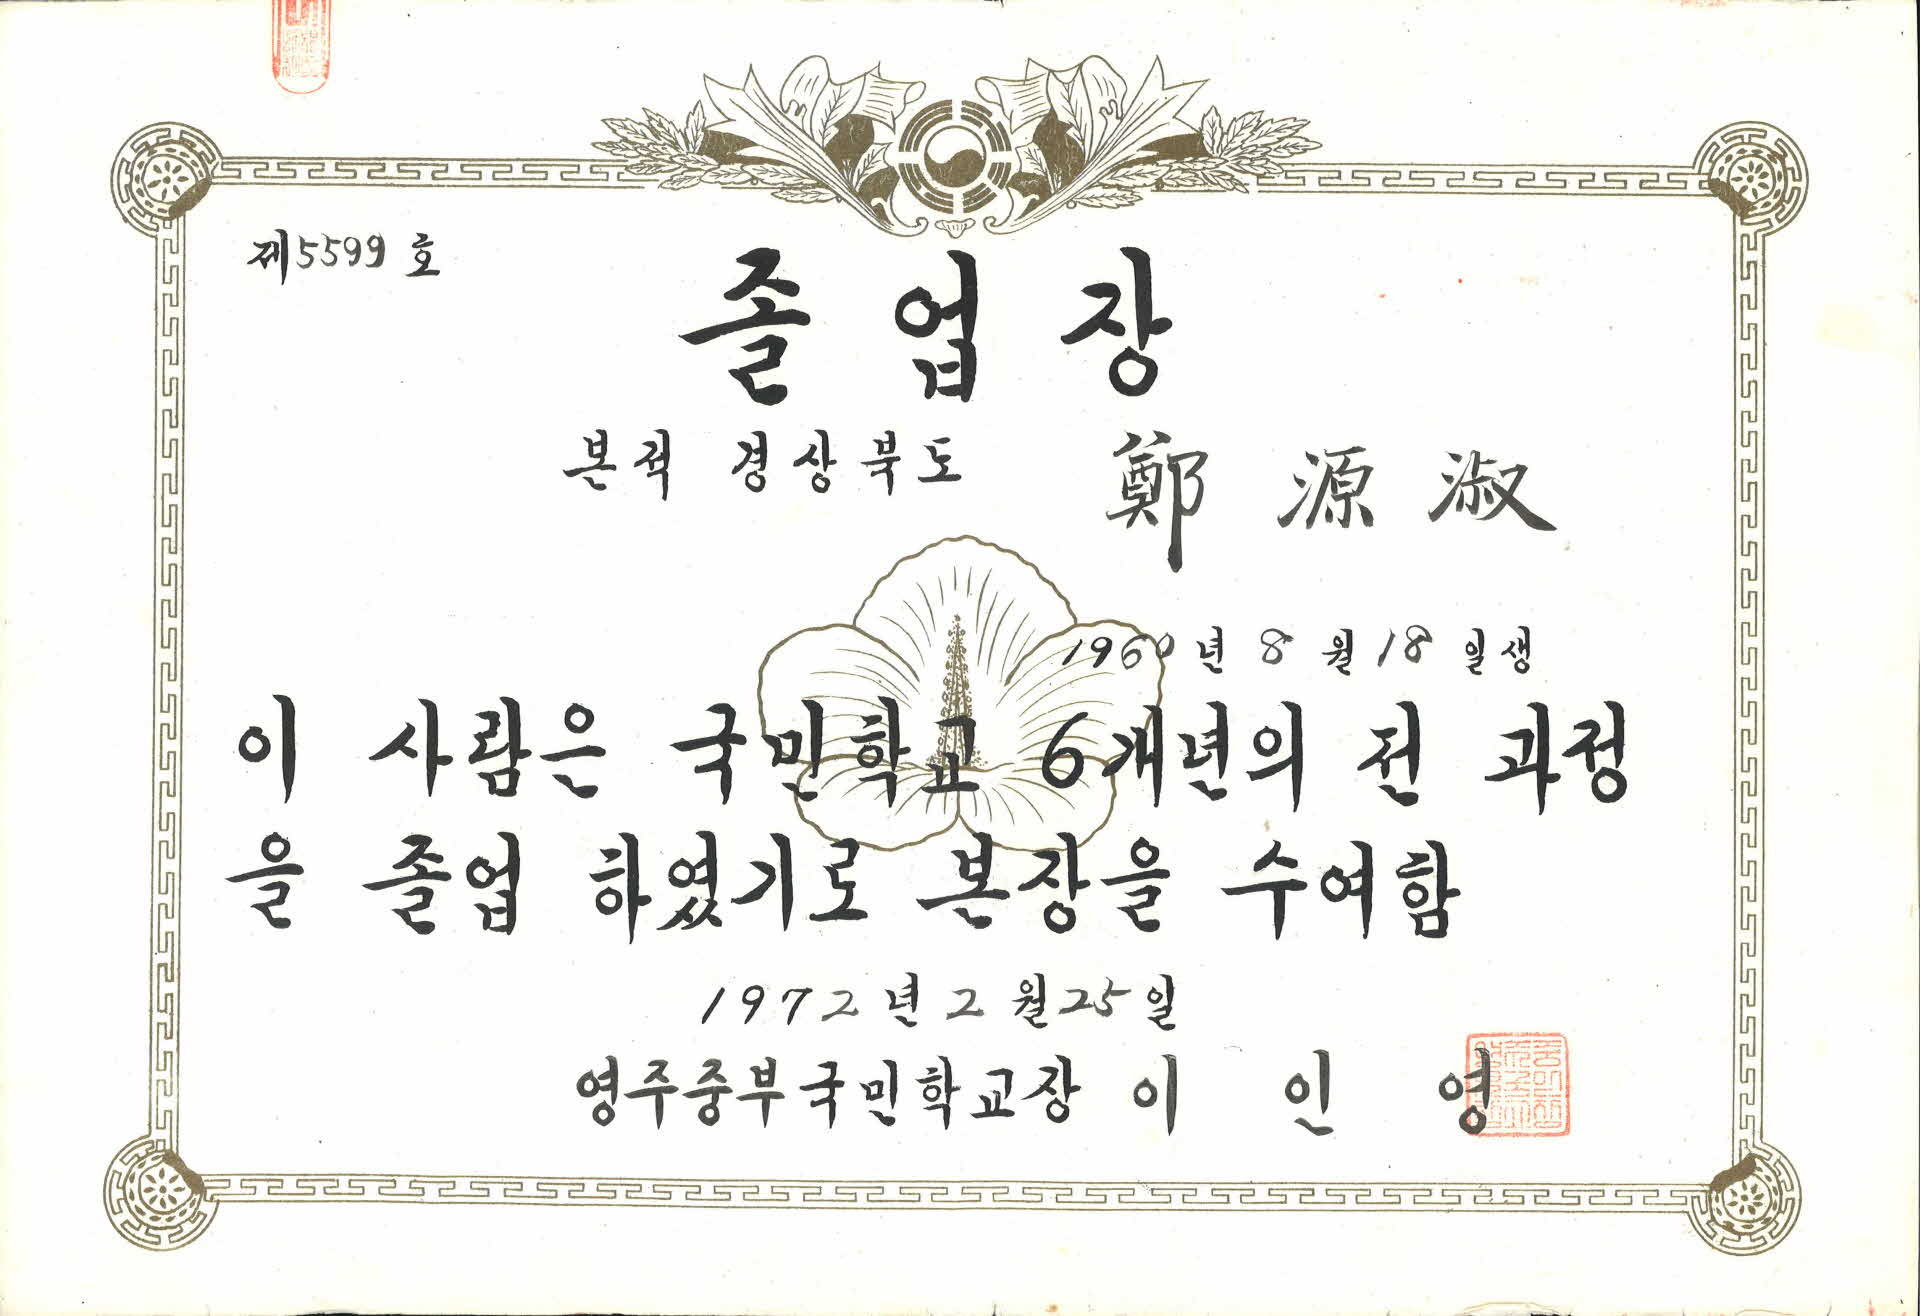 제5599호
졸업장
본적 경상북도 鄭源淑
1960년 8월 18일생
이 사람은 국민학교 6개년의 전 과정
을 졸업 하였기로 본장을 수여함
1972년 2월 25일
영주중부국민학교장 이인영